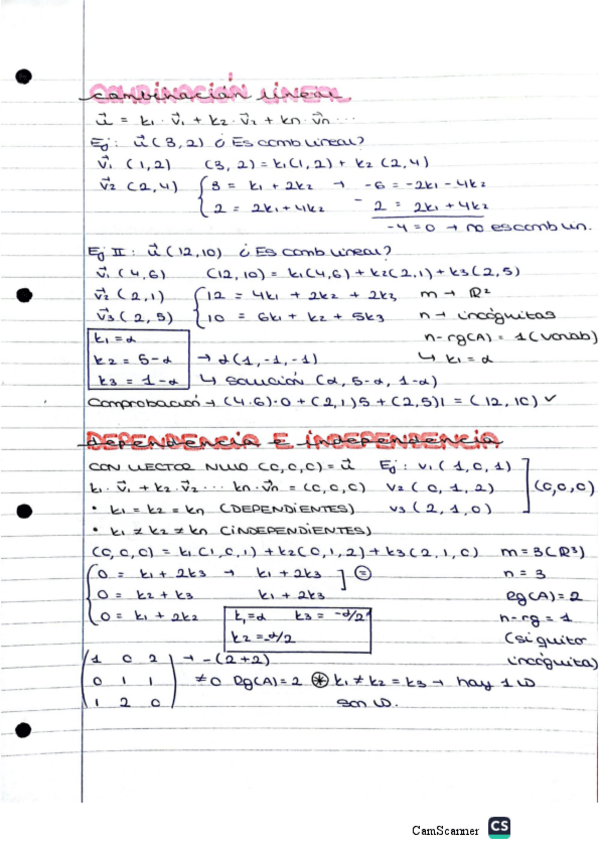 COMBINACIÓN LINEAL
u⃗ = k1 · v⃗1 + k2 · v⃗2 + kn · v⃗n ...
Ej: u⃗ (3,2) ¿Es comb lineal?
v⃗1 (1,2) (3,2) = k1(1,2) + k2 (2,4)
v⃗2 (2,4) { 3 = k1 + 2k2 → -6 = -2k1 - 4k2
2 = 2k1 + 4k2 - 2 = 2k1 + 4k2
-4 = 0 → no es comb lin.
Ej II: u⃗ (12,10) ¿Es comb lineal?
v⃗1 (4,6) (12,10) = k1(4,6) + k2(2,1) + k3(2,5)
v⃗2 (2,1) { 12 = 4k1 + 2k2 + 2k3 m → R²
v⃗3 (2,5) 10 = 6k1 + k2 + 5k3 n → incógnitas
k1 = α n - rg(A) = 1 (variab)
k2 = 5-α → α(1,-1,-1) ↳ k1 = α
k3 = 1-α ↳ solución (α, 5-α, 1-α)
Comprobación → (4·6)·0 + (2,1)5 + (2,5)1 = (12,10) ✓
DEPENDENCIA E INDEPENDENCIA
CON VECTOR NULO (0,0,0) = u⃗ Ej: v1 (1,0,1)
k1 · v⃗1 + k2 · v⃗2 ... kn · v⃗n = (0,0,0) v2 (0,1,2) (0,0,0)
• k1 = k2 = kn (DEPENDIENTES) v3 (2,1,0)
• k1 ≠ k2 ≠ kn (INDEPENDIENTES)
(0,0,0) = k1(1,0,1) + k2(0,1,2) + k3(2,1,0) m = 3 (R³)
0 = k1 + 2k3 → k1 + 2k3 ] = n = 3
0 = k2 + k3 k1 + 2k3 Rg(A) = 2
0 = k1 + 2k2 k1 = α k3 = -α/2 n - rg = 1
k2 = -α/2 (si quito
1 0 2 → -(2+2) incógnita)
0 1 1 ≠ 0 Rg(A) = 2 ⊛ k1 ≠ k2 = k3 → hay 1
1 2 0 son
CamScanner CS